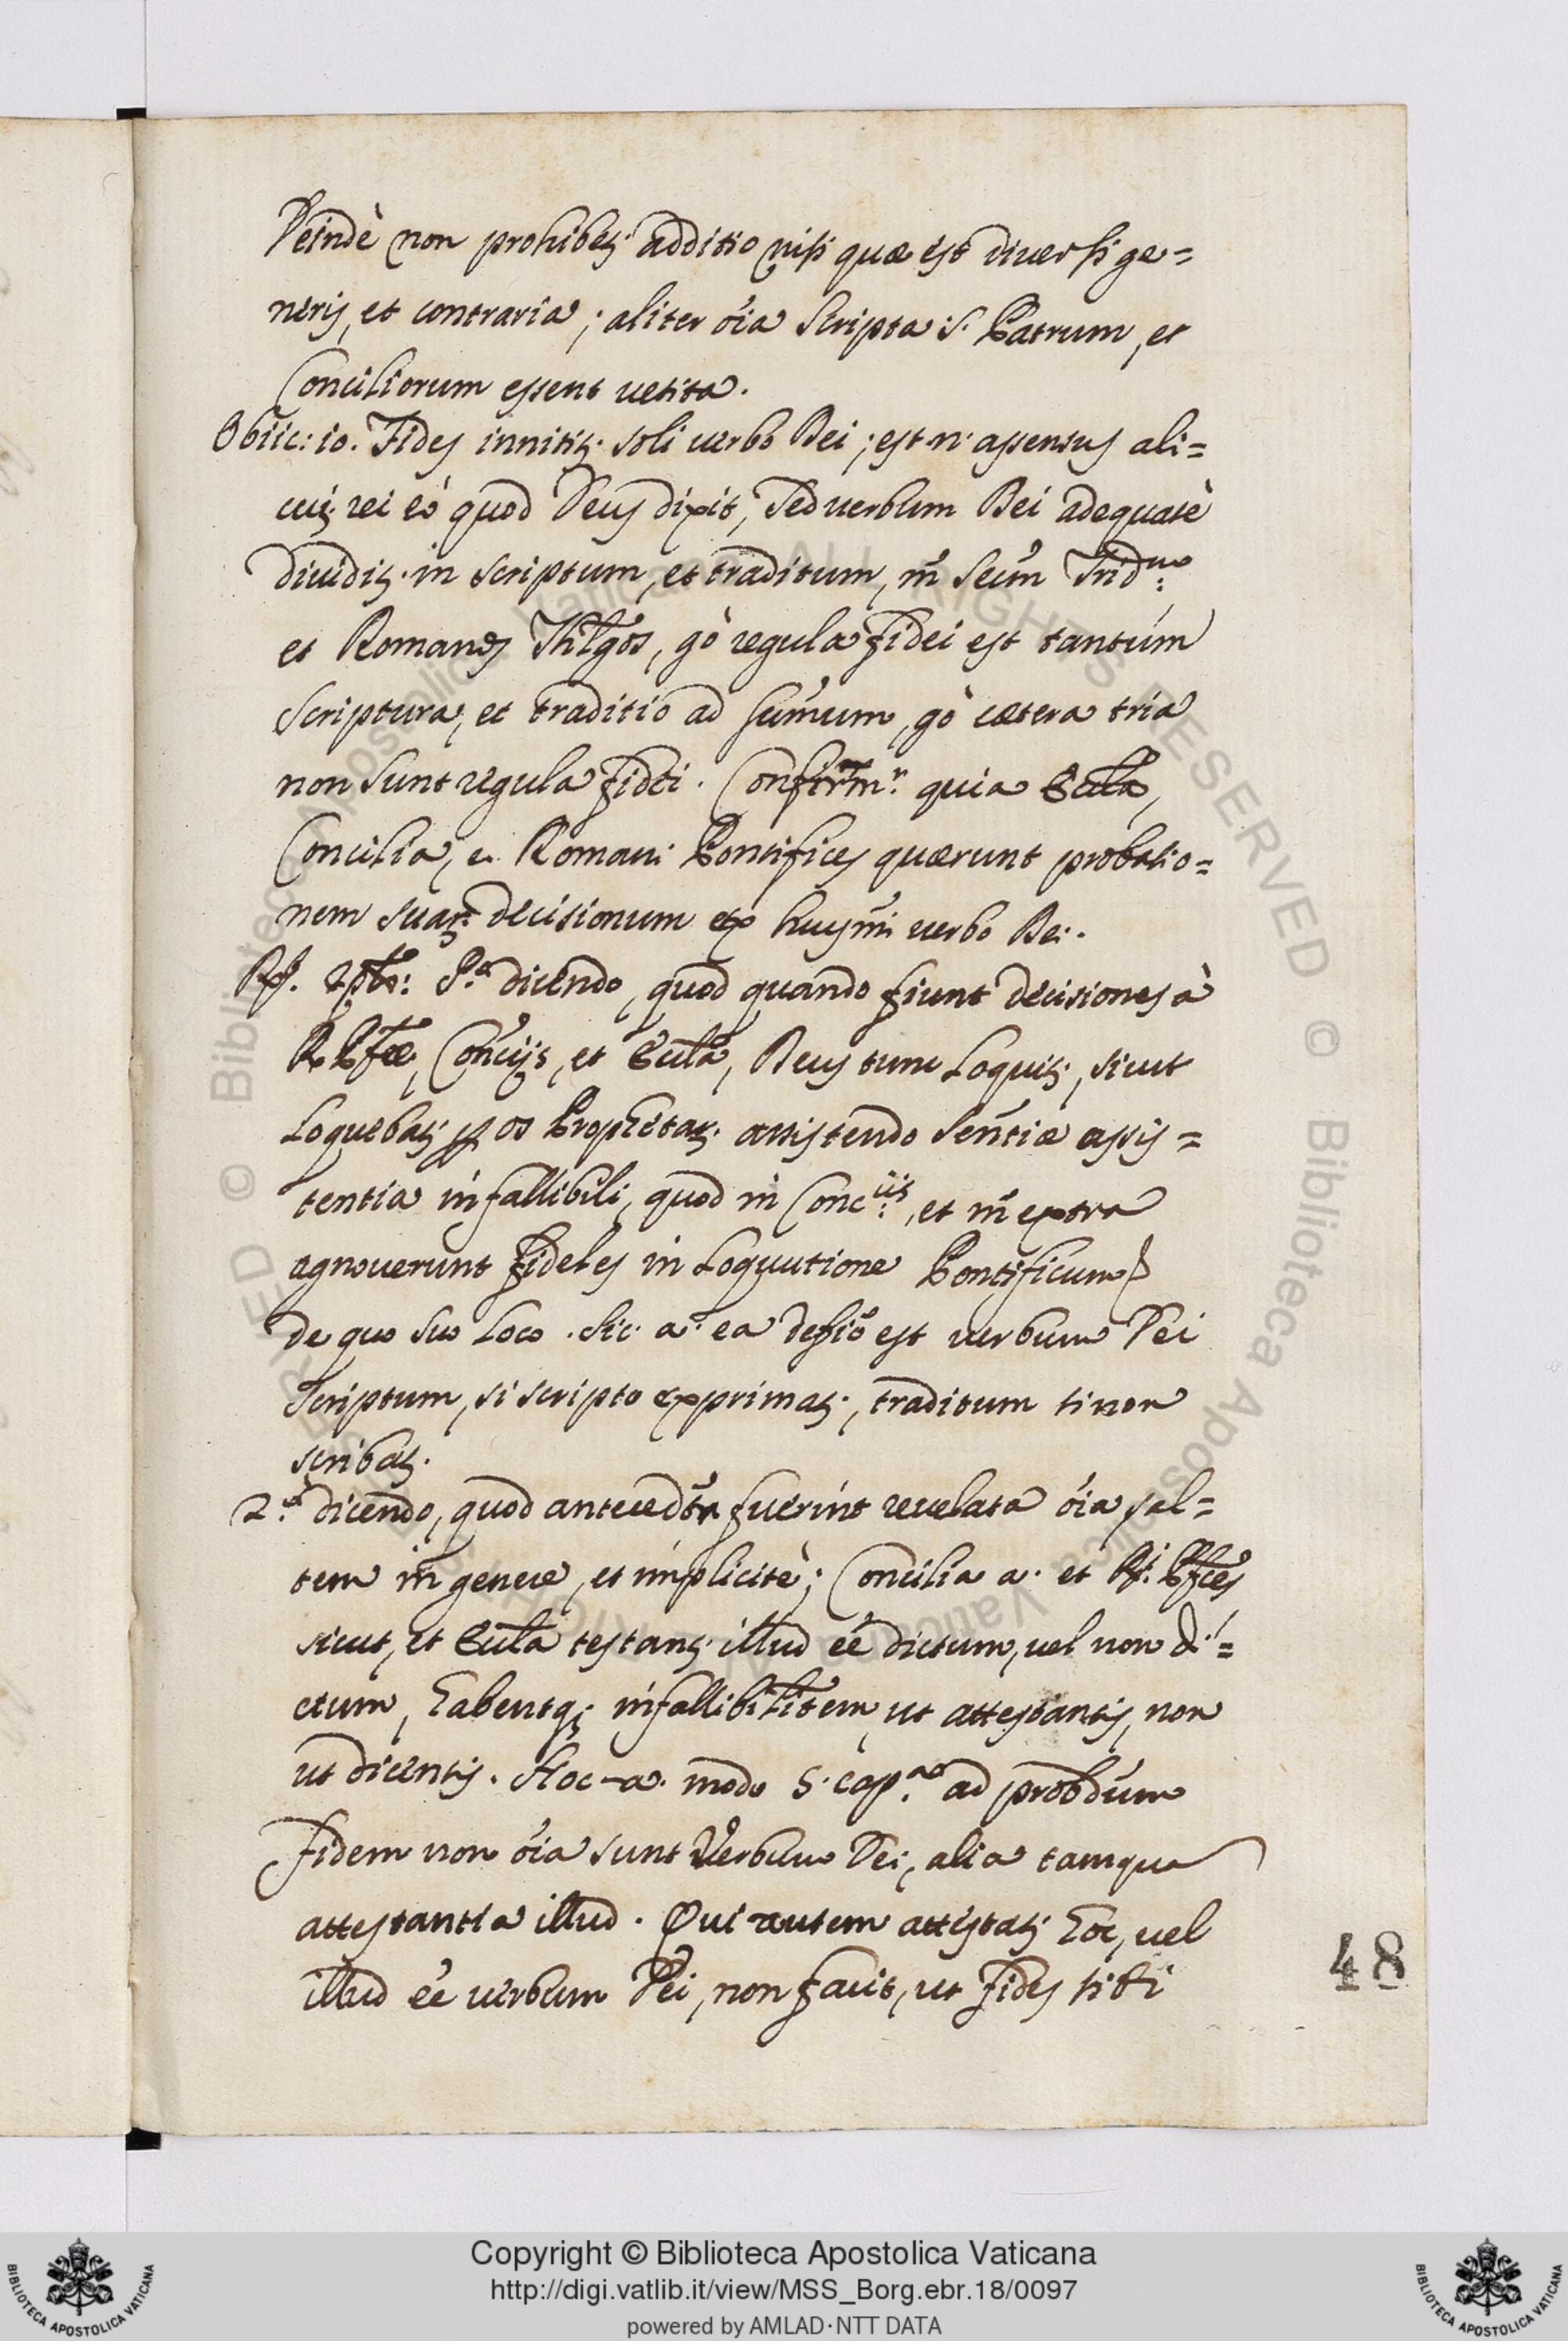 Deindè non prohibet: additio nisi quæ est diuersi ge=
neris, et contraria; aliter oĩa scripta S. Patrum, et
Conciliorum essent uetita.
Obiic: 10. Fides innitit: soli uerbo Dei; est n. assensus ali=
cui rei eò quod Deus dixit, sed uerbum Dei adequatè
diuidit: in scriptum, et traditum, m̃ secũm Trid.no
et Romanos Thlgos, gò regula fidei est tantùm
Scriptura, et traditio ad sum̃um, gò cætera tria
non sunt regula fidei. Confirm.r quia Eccla,
Concilia, et Romani Pontifices quærunt probatio=
nem suar: decisionum ex huysm̃i uerbo Dei.
P.o dicendo, quod quando fiunt decisiones à
R. Pfce, Conciis, et Eccla, Deus tunc loquit:, sicut
loquebat: per os Prophetar: assistendo sentiæ assis=
tentia infallibili, quod in Conc.iis, et m̃ extra
agnouerunt fideles in loquutione Pontificum
de quo suo loco. Sic a. ea defiõ est uerbum Dei
scriptum, si scripto exprimat:, traditum si non
scribat:
2.o dicendo, quod antecedtr fuerint reuelata oĩa sal=
tem in genere, et implicitè; Concilia a. et R. Pfces
sicut, et Eccla testant: illud eẽ dictum, uel non di=
ctum, habentq; infallibilitem, ut attestantis, non
ut dicentis. Hoc a. modo 5. cap.a ad probdum
fidem non oĩa sunt Verbum Dei, alia tamqua
attestantia illud. Qui autem attestat: hoc, uel
illud eẽ uerbum Dei, non facit, ut fides sibi
48
Copyright © Biblioteca Apostolica Vaticana
http://digi.vatlib.it/view/MSS_Borg.ebr.18/0097
powered by AMLAD·NTT DATA